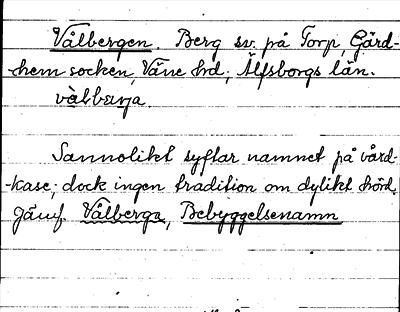 Vålbergen. Berg sv. på Torp, Gärd-
hem socken, Väne hd, Älfsborgs län.
vàlbærja.
Sannolikt syftar namnet på vård-
-kase; dock ingen tradition om dylikt hörd.
Jämf. Vålberga, Bebyggelsenamn